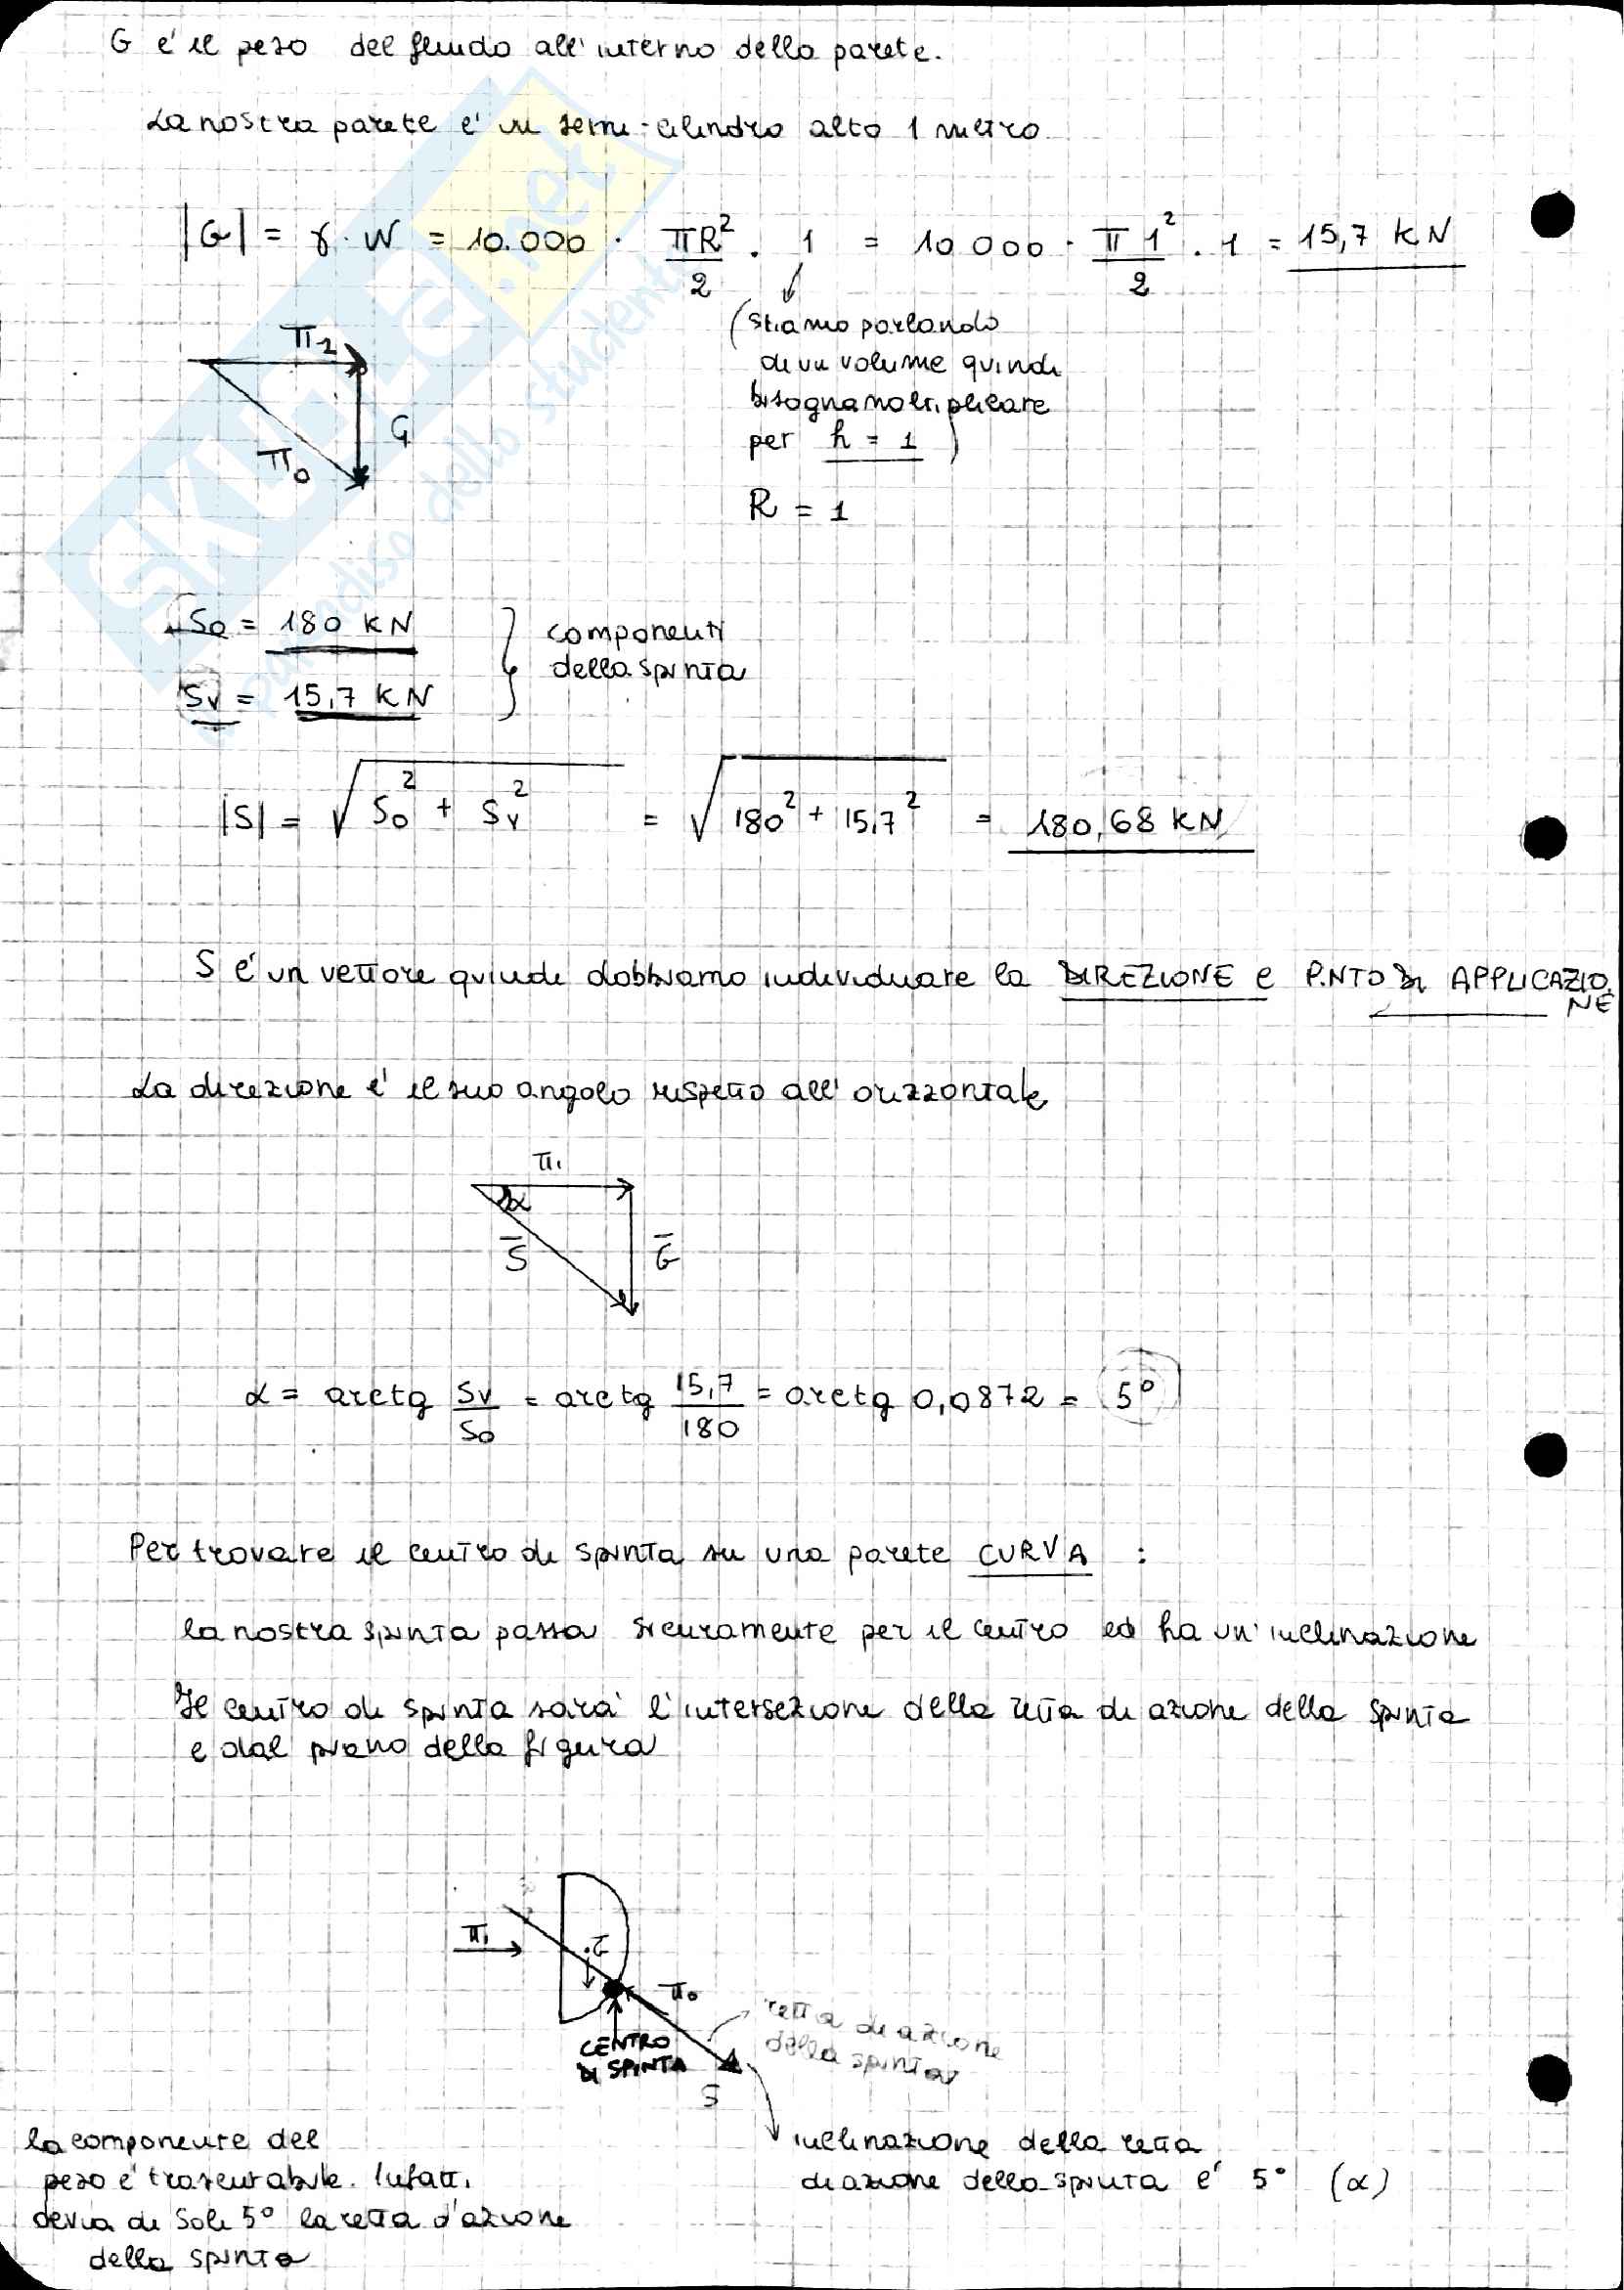 G e' il peso del fluido all'interno della parete.
La nostra parete e' un semi-cilindro alto 1 metro
|G| = γ · W = 10.000 · πR²/2 · 1 = 10 000 · π 1²/2 · 1 = 15,7 KN
(stiamo parlando
di un volume quindi
bisogna moltiplicare
per h = 1)
R = 1
Π1
G
Π0
So = 180 KN
Sv = 15,7 KN
componenti
della spinta
|S| = √So² + Sv² = √180² + 15,7² = 180,68 KN
S e' un vettore quindi dobbiamo individuare la DIREZIONE e P.NTO DI APPLICAZIO
NE
La direzione e' il suo angolo rispetto all'orizzontale
Π1
α
S
G
α = arctg Sv/So = arctg 15,7/180 = arctg 0,0872 = 5°
Per trovare il centro di spinta su una parete CURVA :
la nostra spinta passa sicuramente per il centro ed ha un'inclinazione
Il centro di spinta sara' l'intersezione della retta di azione della spinta
e dal piano della figura
Π1
G
Π0
CENTRO
DI SPINTA
S
retta di azione
della spinta
inclinazione della retta
di azione della spinta e' 5° (α)
la componente del
peso e' trascurabile. Infatti
devia di soli 5° la retta d'azione
della spinta
SKUOLA.net
il paradiso dello studente